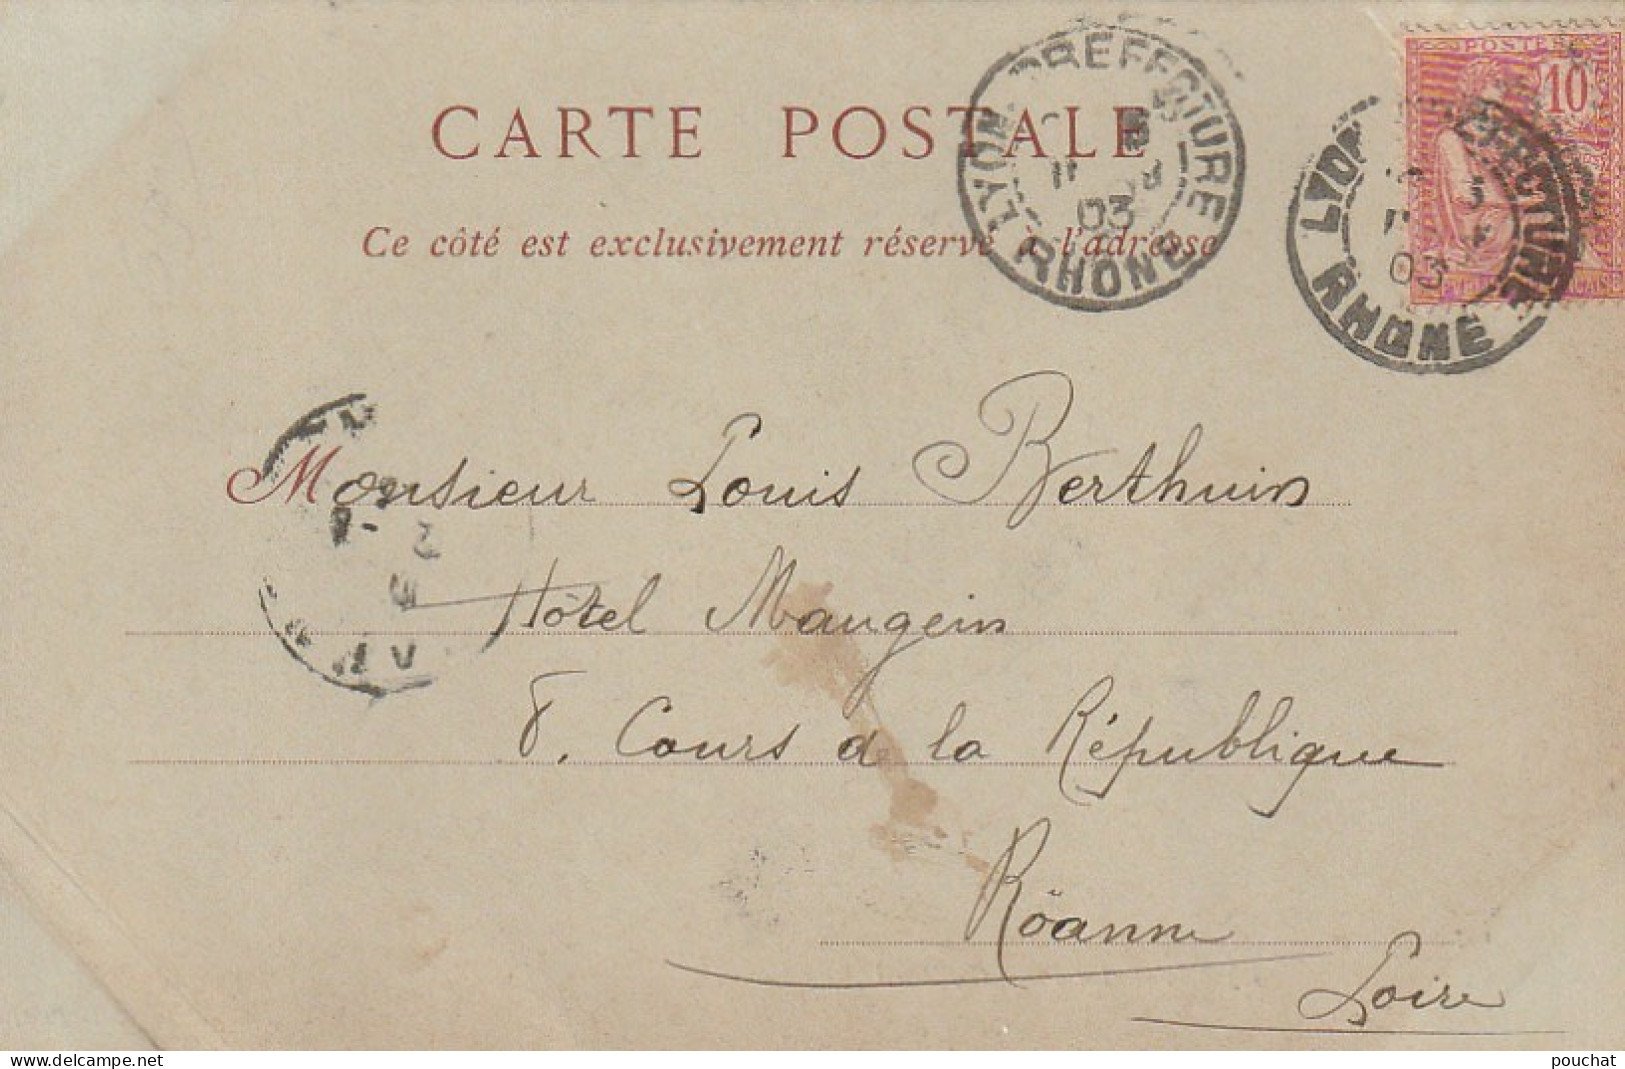 CARTE POSTALE
Ce côté est exclusivement réservé à l'adresse
LYON PREFECTURE
03
RHONE
POSTES
10
LYON PREFECTURE
03
RHONE
Monsieur Louis Berthuin
Hôtel Maugein
8. Cours de la République
Röanne
Loire
www.delcampe.net
pouchat